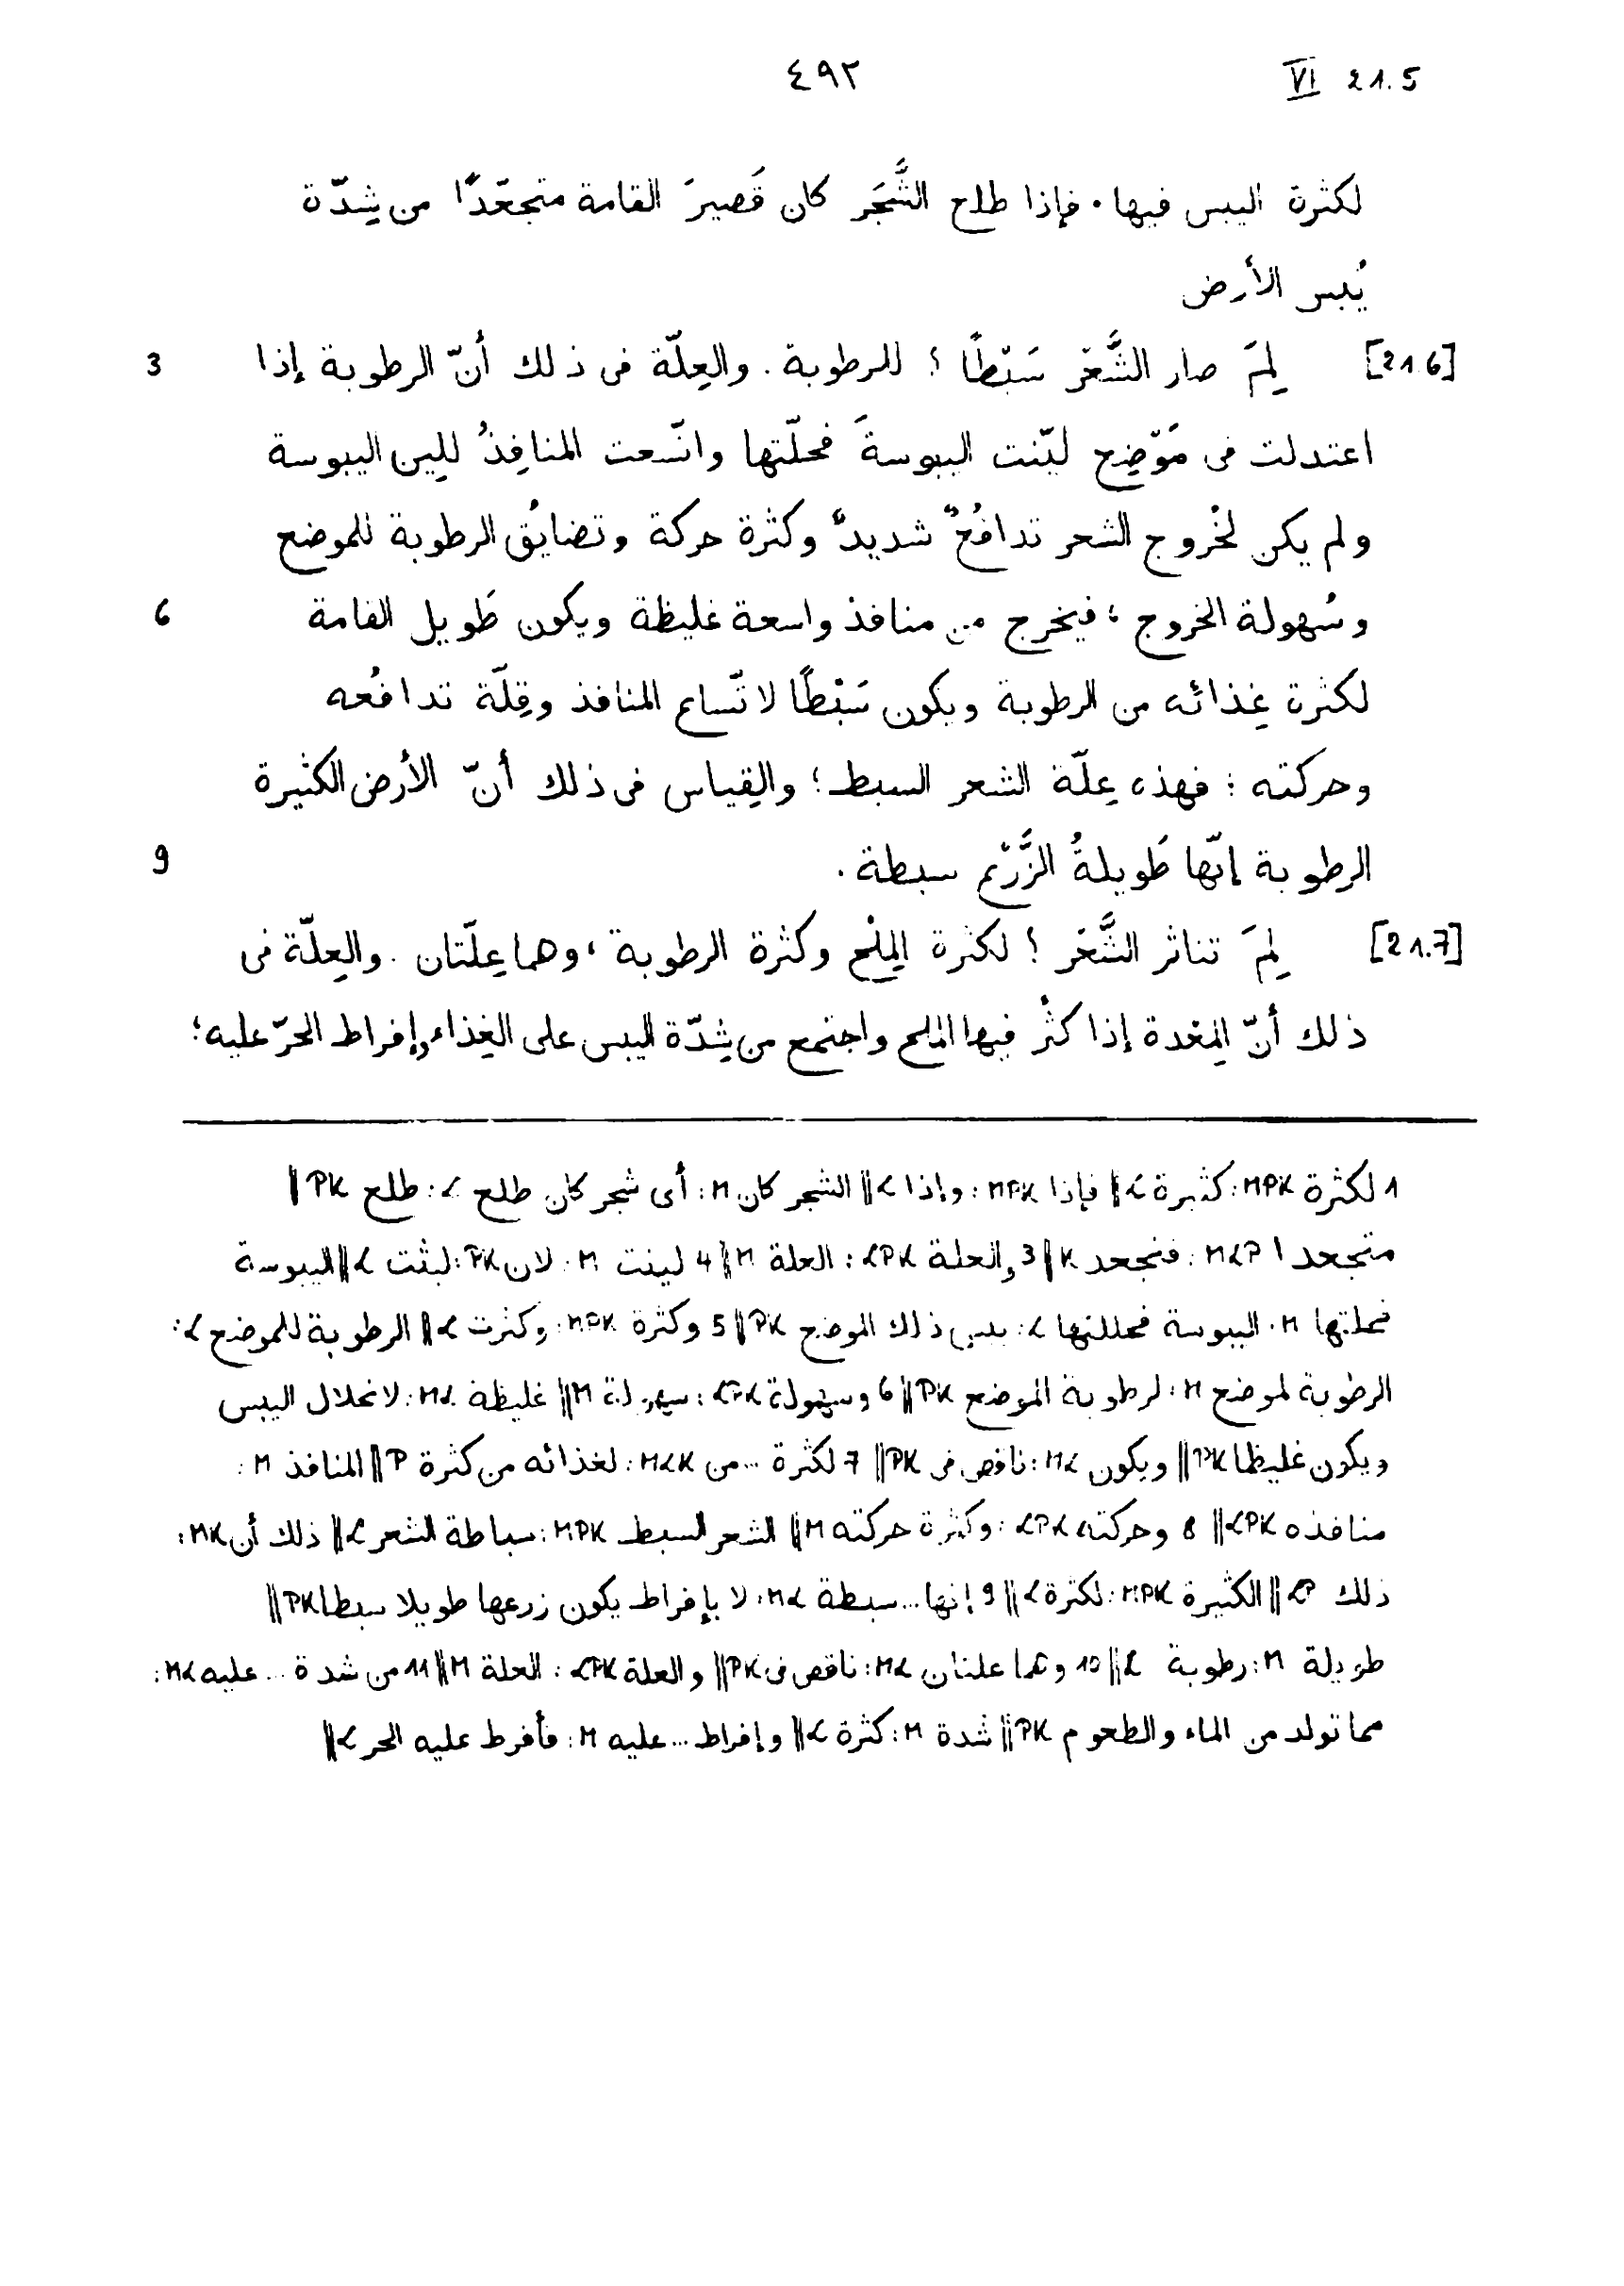 VI 21.5 ٤٩٢
لكثرة اليبس فيها. فإذا طلع الشَّجَر كان قَصيرَ القامة متجعّدًا من شِدّة
يُبس الأرض
[21.6] لِمَ صار الشَّعْر سَبْطًا؟ للرطوبة. والعِلّة فى ذلك أنّ الرطوبة إذا 3
اعتدلت فى مَوْضِع ليّنت اليبوسةَ فحلّتها واتّسعت المنافِذُ للِين اليبوسة
ولم يكن لخُروج الشعر تدافُعٌ شديدٌ وكثرة حركة وتضايُق الرطوبة للموضع
وسُهولة الخروج؛ فيخرج من منافذ واسعة غليظة ويكون طَويل القامة 6
لكثرة غِذائه من الرطوبة ويكون سَبْطًا لاتّساع المنافذ وقِلّة تدافُعه
وحركته؛ فهذه عِلّة الشعر السبط؛ والقِياس فى ذلك أنّ الأرض الكثيرة
الرطوبة إنّها طَويلةُ الزَّرْع سبطة. 9
[21.7] لِمَ تناثر الشَّعْر؟ لكثرة المِلْح وكثرة الرطوبة، وهما عِلّتان. والعِلّة فى
ذلك أنّ المِعْدة إذا كثُر فيها الملح واجتمع من شِدّة اليبس على الغِذاء وإفراط الحرّ عليه؛
1 لكثرة MPK: كثيرة L ‖ فإذا MPK: وإذا L ‖ الشجر كان M: أى شجر كان طلع L: طلع PK ‖
متجعدا MLP: فتجعد K ‖ 3 والعلة LPK: العلة M ‖ 4 لينت M: لان PK: لبثت L ‖ اليبوسة
فحلتها M: اليبوسة فحللتها L: يبس ذلك الموضع PK ‖ 5 وكثرة MPK: وكثرت L ‖ الرطوبة للموضع L:
الرطوبة لموضع M: لرطوبة الموضع PK ‖ 6 وسهولة LPK: سهولة M ‖ غليظة ML: لانحلال اليبس
ويكون غليظا PK ‖ ويكون ML: ناقص فى PK ‖ 7 لكثرة ... من MLK: لغذائه من كثرة P ‖ المنافذ M:
منافذه LPK ‖ 8 وحركته LPK: وكثرة حركته M ‖ الشعر السبط MPK: سباطة الشعر L ‖ ذلك أن MK:
ذلك LP ‖ الكثيرة MPK: لكثرة L ‖ 9 إنها ... سبطة ML: لا بإفراط يكون زرعها طويلا سبطا PK ‖
طويلة M: رطوبة L ‖ 10 وهما علتان ML: ناقص فى PK ‖ والعلة LPK: العلة M ‖ 11 من شدة ... عليه ML:
مما تولد من الماء والطعوم PK ‖ شدة M: كثرة L ‖ وإفراط ... عليه M: فأفرط عليه الحر L ‖